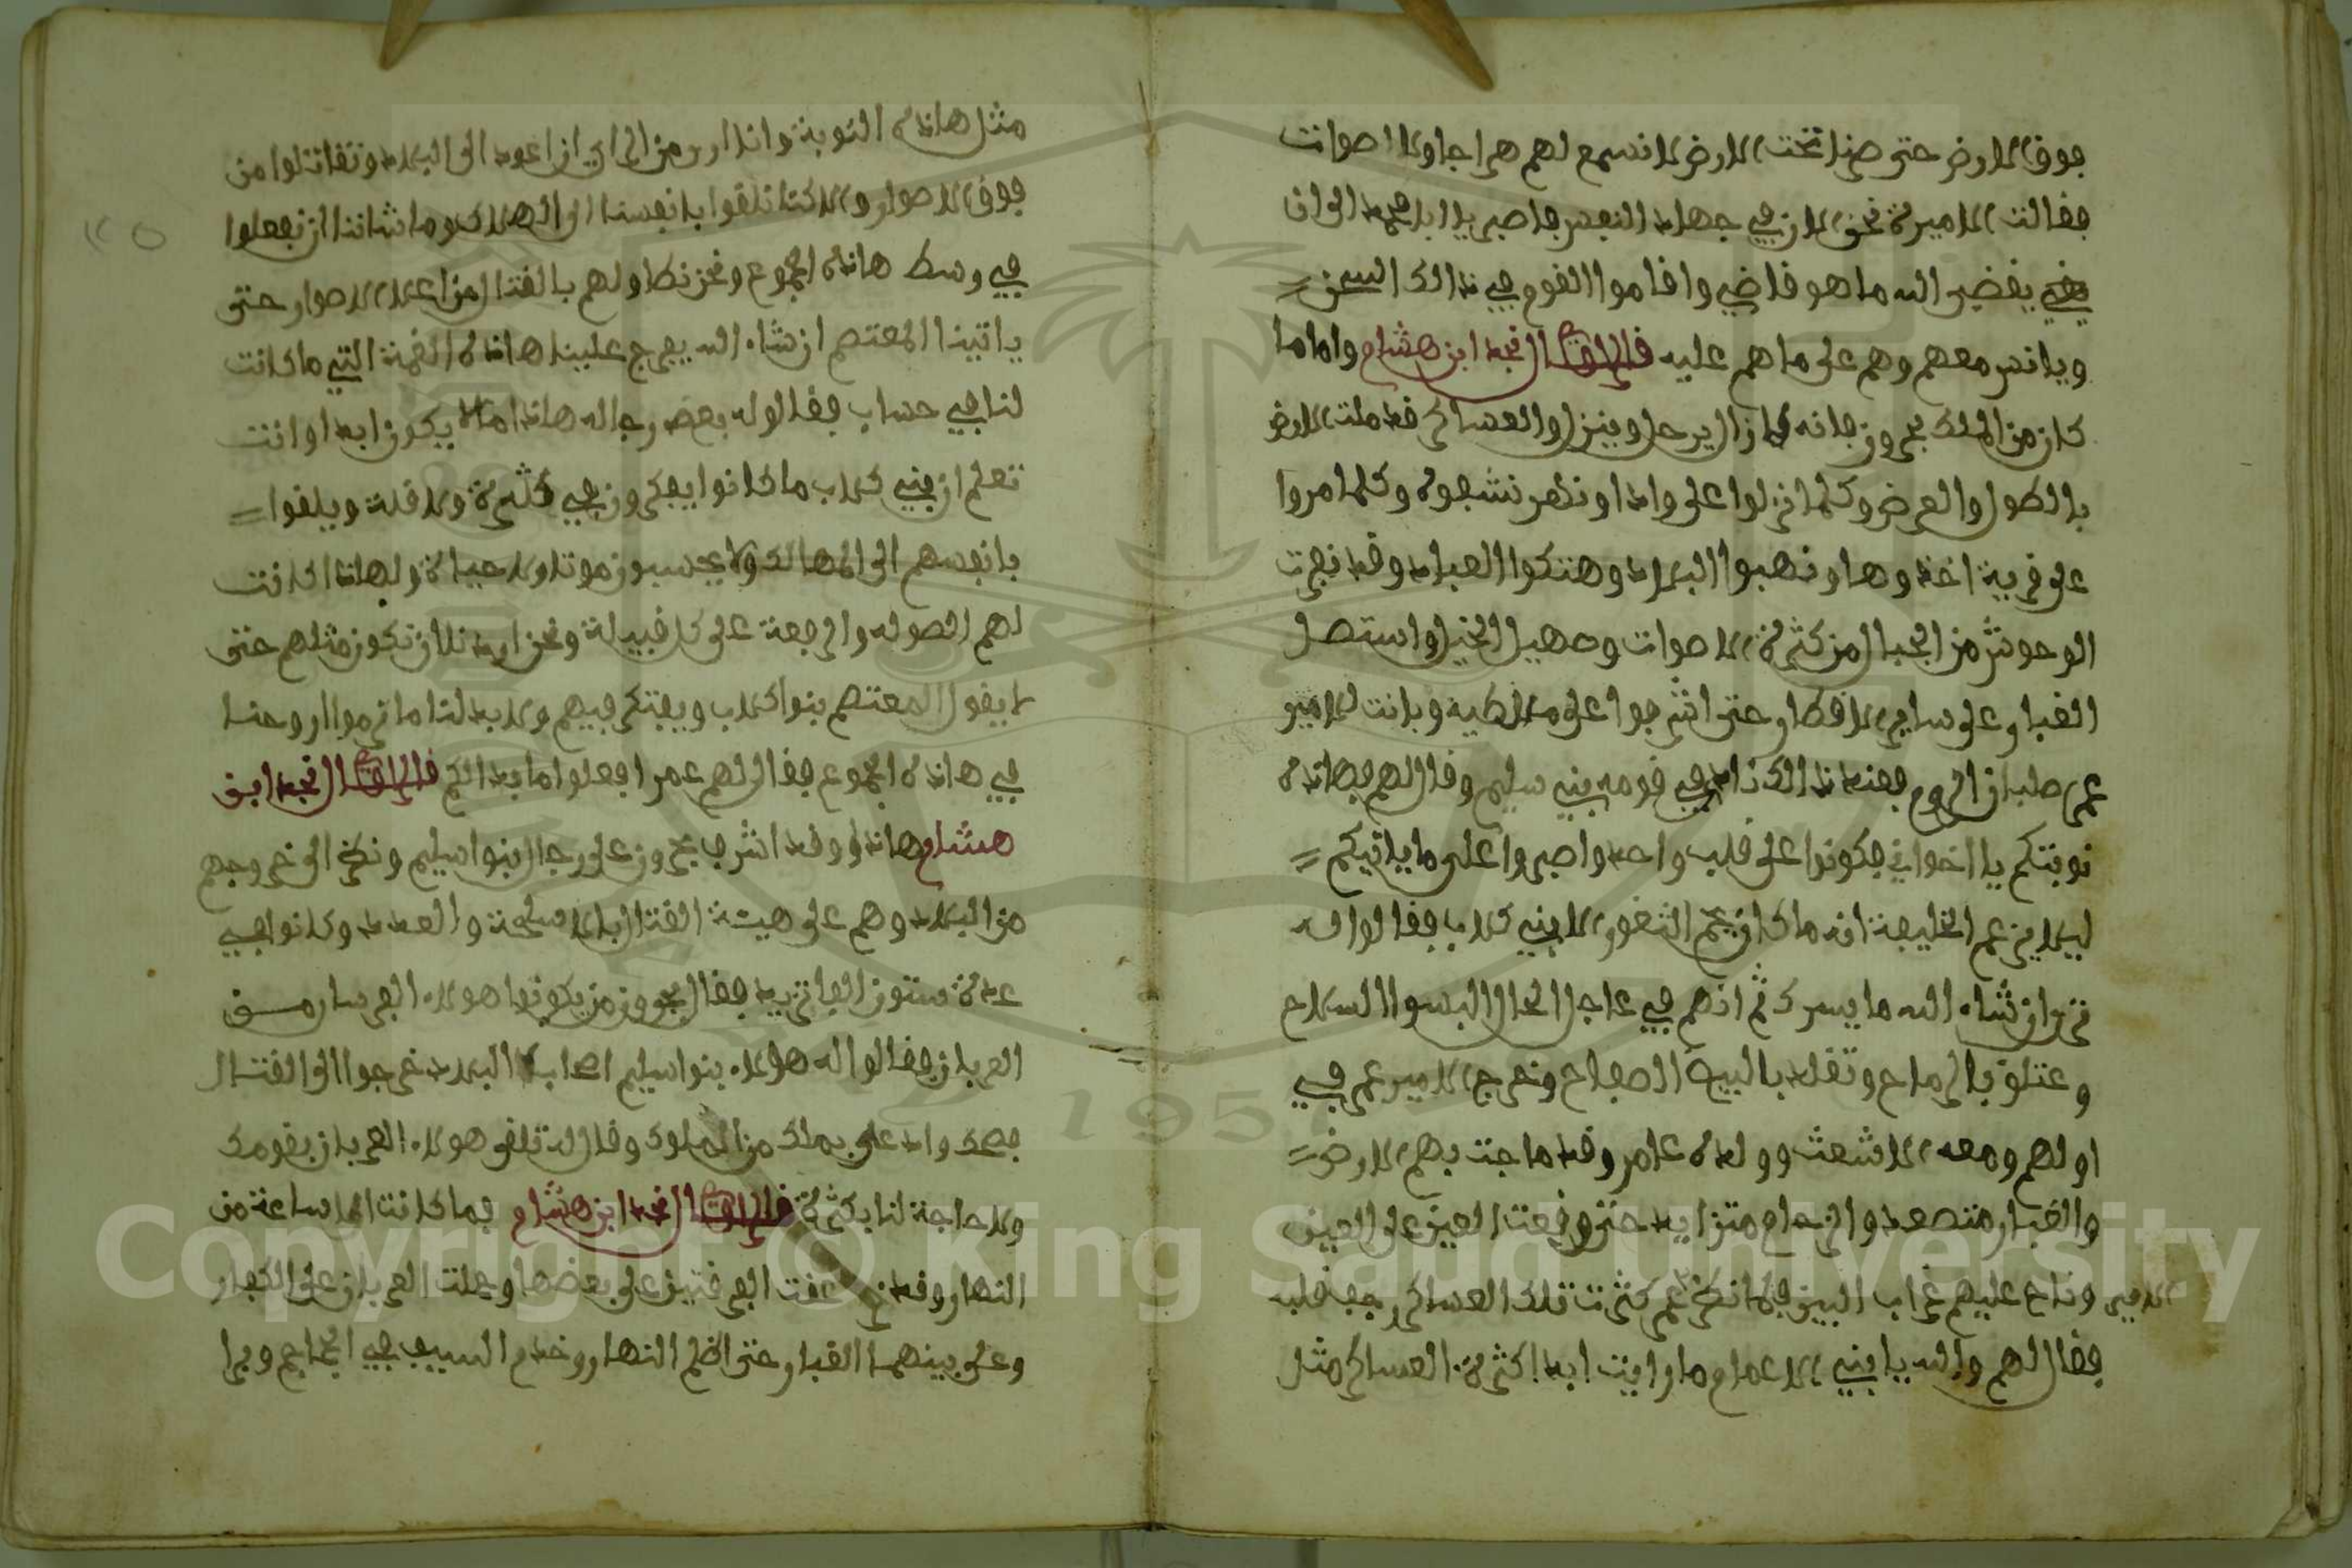 فوق الارض حتى صرنا تحت الارض لا نسمع لهم هراجا ولا اصوات
فقالت الاميرة نحن الان في جهاد النفس فاصبر يا ابا محمد الى ان
يقضي الله ما هو قاضي واقاموا القوم في ذالك السجن
ويانس معهم وهم على ما هم عليه قال الراوي النجد ابن هشام واما ما
كان من الملك فانه كان ال يرحل وينزل والعساكر قد ملت الارض
بالطول والعرض وكلما نزلوا على واد او نهر نشفوه وكلما مروا
على قرية اخذوها ونهبوا البلاد وهتكوا العباد وقد نفرت
الوحوش من الجبال من كثرة الاصوات وصهيل الخيل واستصل
الغبار على ساير الاقطار حتى اشرفوا على ملاطية وبانت للامير
عمر صلبان الروم فعند ذالك نادى في قومه بني سليم وقال لهم فهاذه
نوبتكم يا اخواني فكونوا على قلب واحد واصبروا على ما ياتيكم
ليلا يزعم الخليفة انه ما كان يحم الثغور الا بني كلاب فقالوا له
ترى ان شاء الله ما يسرك ثم انهم في عاجل الحال البسوا السلاح
وعتلو بالرماح وتقلد بالبيض الصفاح وخرج الامير عمر في
اولهم ومعه الاشعث وولده عامر وقد ماجت بهم الارض
والغبار متصعد والزحام متزايد حتى وقعت العين على العين
وناح عليهم غراب البين فلما نظر عمر كثرت تلك العساكر رجف قلبه
فقال لهم والله يا بني الاعمام ما رايت ابدا كثرة العساكر مثل
مثل هاذه النوبة وانا ارى من الراي ان اعود الى البلاد ونقاتلوا من
فوق الاصوار ولا كنا نلقوا بانفسنا الى الهلاك وما شاننا ان نفعلوا
في وسط هاذه الجموع ونحن نطاولهم بالقتال من اعلا الاصوار حتى
ياتينا المعتصم ان شاء الله يفرج علينا هاذه الغمة التي ما كانت
لنا في حساب فقالوا له بعض رجاله هاذا ما لا يكون ابدا وانت
تعلم ان بني كلاب ما كانوا يفكرون في كثرة ولا قلة ويلقوا
بانفسهم الى المهالك ولا يحسبون موتا ولا حياة ولهاذا كانت
لهم الصوله والرجعة على كل قبيلة ونحن اردنا ان نكون مثلهم حتى
لا يقول المعتصم بنوا كلاب ويفتكر فيهم ولا بد لنا ما نرموا اروحنا
في هاذه الجموع فقال لهم عمر افعلوا ما بدالكم قال الراوي النجد ابن
هشام هاذا وقد اشرف على رجال بنوا سليم ونظر الى خروجهم
من البلاد وهم على هيئة القتال بالاسلحة والعدد وكانوا في
عدة ستون الفا تزيد فقال من يكونوا هولاء الفرسان من
العربان فقالوا له هولاء بنوا سليم اصحاب البلاد خرجوا الى القتال
فضحك واد على بملك من الملوك وقال له تلقى هولاء العربان بقومك
ولا حاجة لنا بكثرة قال الراوي النجد ابن هشام فما كانت الا ساعة من
النهار وقد زعفت الفرقتين على بعضها وحملت العربان على الكفار
وعلى بينهما الغبار حتى اظلم النهار وخدم السييف في الجماجم وبرا
Copyright © King Saud University
1957